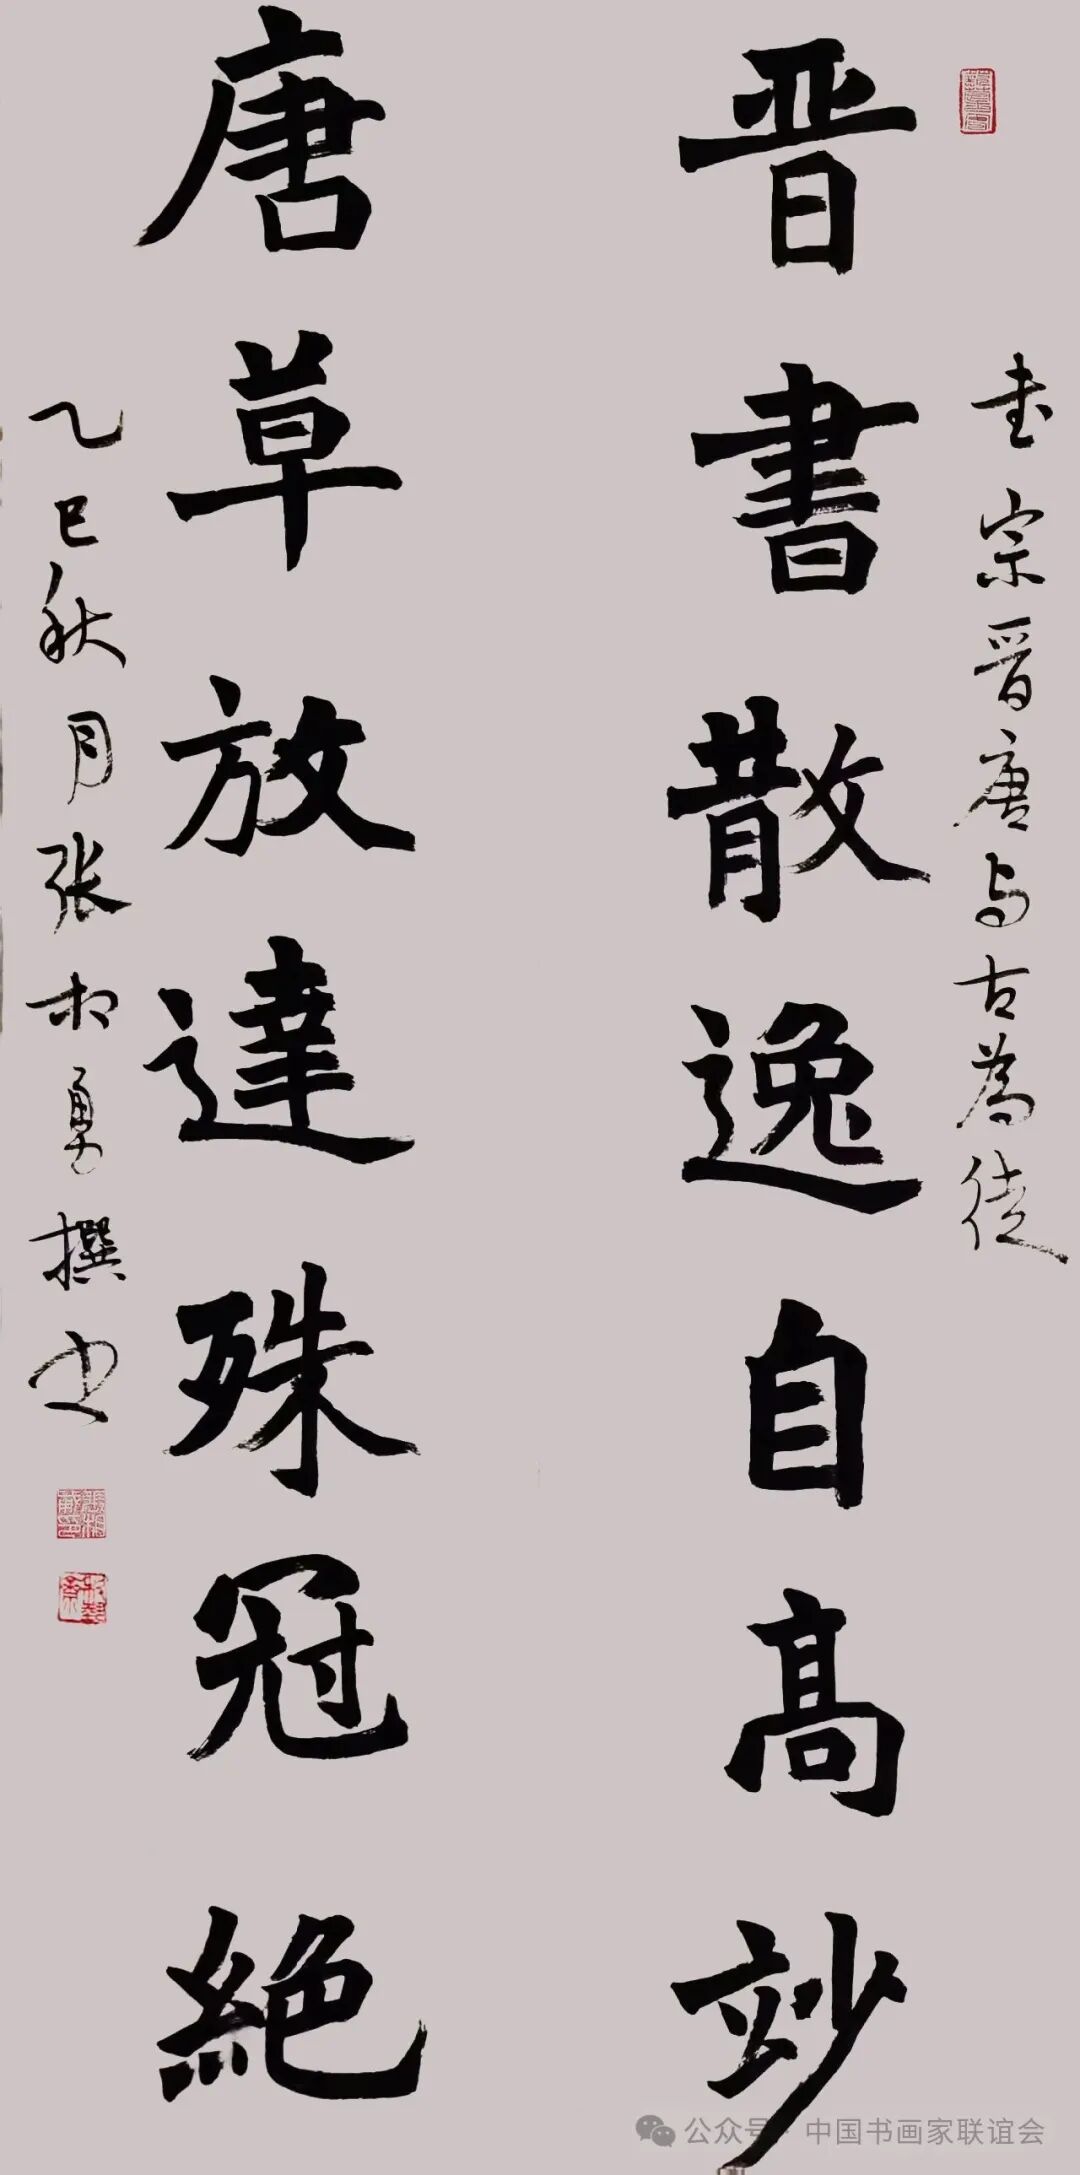 书宗晋唐与古为徒
晋書散逸自高妙
唐草放達殊冠絶
乙巳秋月张相勇撰书
公众号·中国书画家联谊会